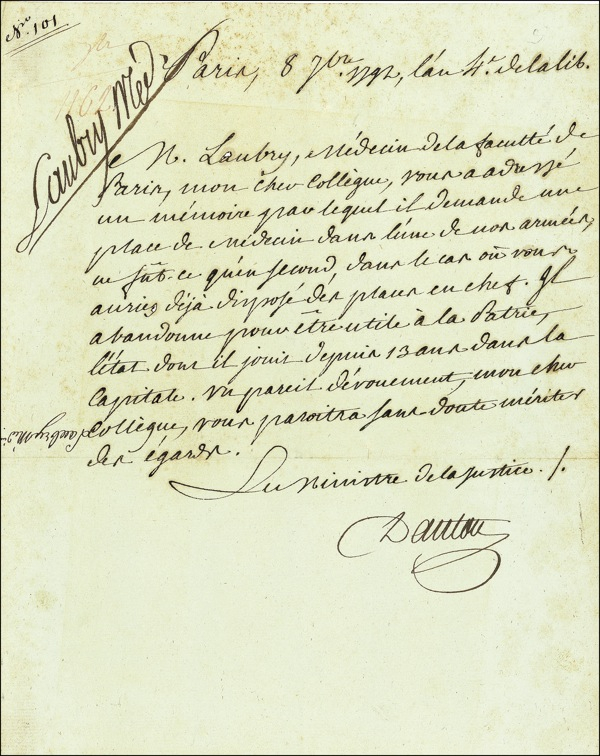 Nro 101
Laubry Med.
Paris, 8 7bre 1792, l'an 4e de la lib.
M. Laubry, Médecin de la faculté de
Paris, mon cher Collègue, vous a adressé
un mémoire par lequel il demande une
place de Médecin dans l'une de nos armées,
ne fût-ce qu'en second, dans le cas où vous
auriez déjà disposé des places en chef. Il
abandonne pour être utile à la Patrie,
l'état dont il jouit depuis 13 ans dans la
Capitale. Un pareil dévouement, mon cher
Collègue, vous paroitra sans doute mériter
des égards.
Laubry Méd.
Le Ministre de la Justice ./.
Danton